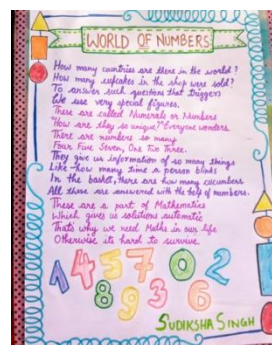 WORLD OF NUMBERS
How many countries are there in the world?
How many cupcakes in the shop were sold?
To answer such questions that triggers
We use very special figures.
These are called Numerals or Numbers
"How are they so unique?" Everyone wonders.
There are numbers so many
Four Five Seven, One Two Three.
They give us information of so many things
Like how many time a person blinks
In the basket, there are how many cucumbers
All these are answered with the help of numbers.
These are a part of Mathematics
Which gives us solutions automatic
That's why we need Maths in our life
Otherwise its hard to survive.
1 4 5 7 0 2
8 9 3 6
SUDIKSHA SINGH